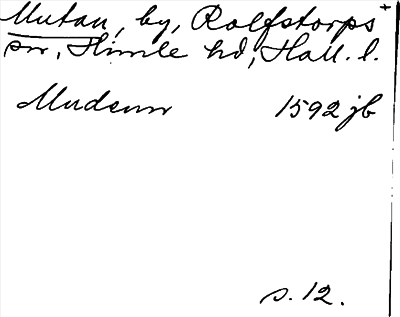 Mutan, by, Rolfstorps+
sn, Himle hd, Hall. l.
Mudenn 1592 jb
s. 12.